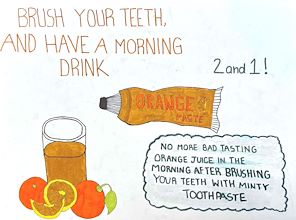 BRUSH YOUR TEETH,
AND HAVE A MORNING
DRINK
2 and 1!
ORANGE
PASTE
NO MORE BAD TASTING
ORANGE JUICE IN THE
MORNING AFTER BRUSHING
YOUR TEETH WITH MINTY
TOOTHPASTE